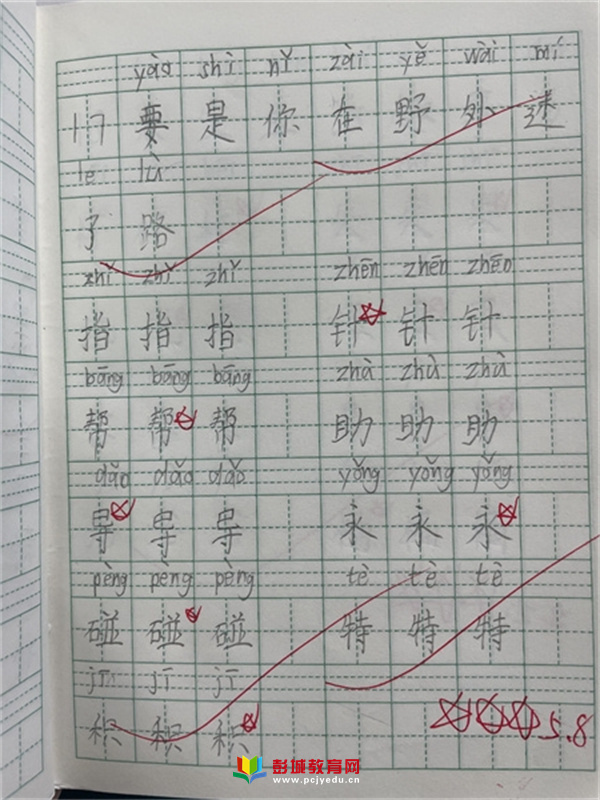 yào shì nǐ zài yě wài mí
17 要 是 你 在 野 外 迷
le lù
了 路
zhǐ zhǐ zhǐ zhēn zhēn zhēn
指 指 指 针 针 针
bāng bāng bāng zhù zhù zhù
帮 帮 帮 助 助 助
dǎo dǎo dǎo yǒng yǒng yǒng
导 导 导 永 永 永
pèng pèng pèng tè tè tè
碰 碰 碰 特 特 特
jī jī jī
积 积 积
5.8
彭城教育网
www.pcjyedu.cn